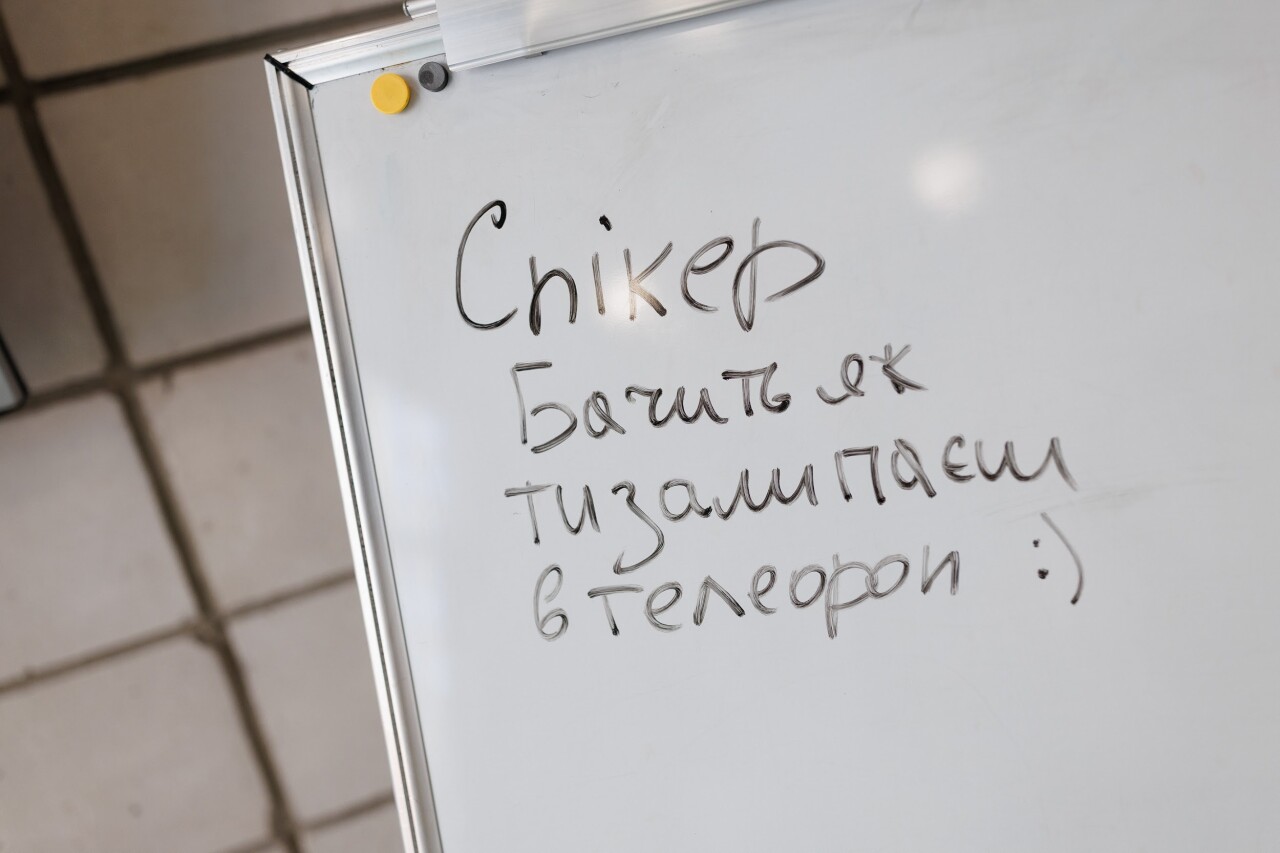 Спікер
Бачить як
ти залипаєш
в телефон :)